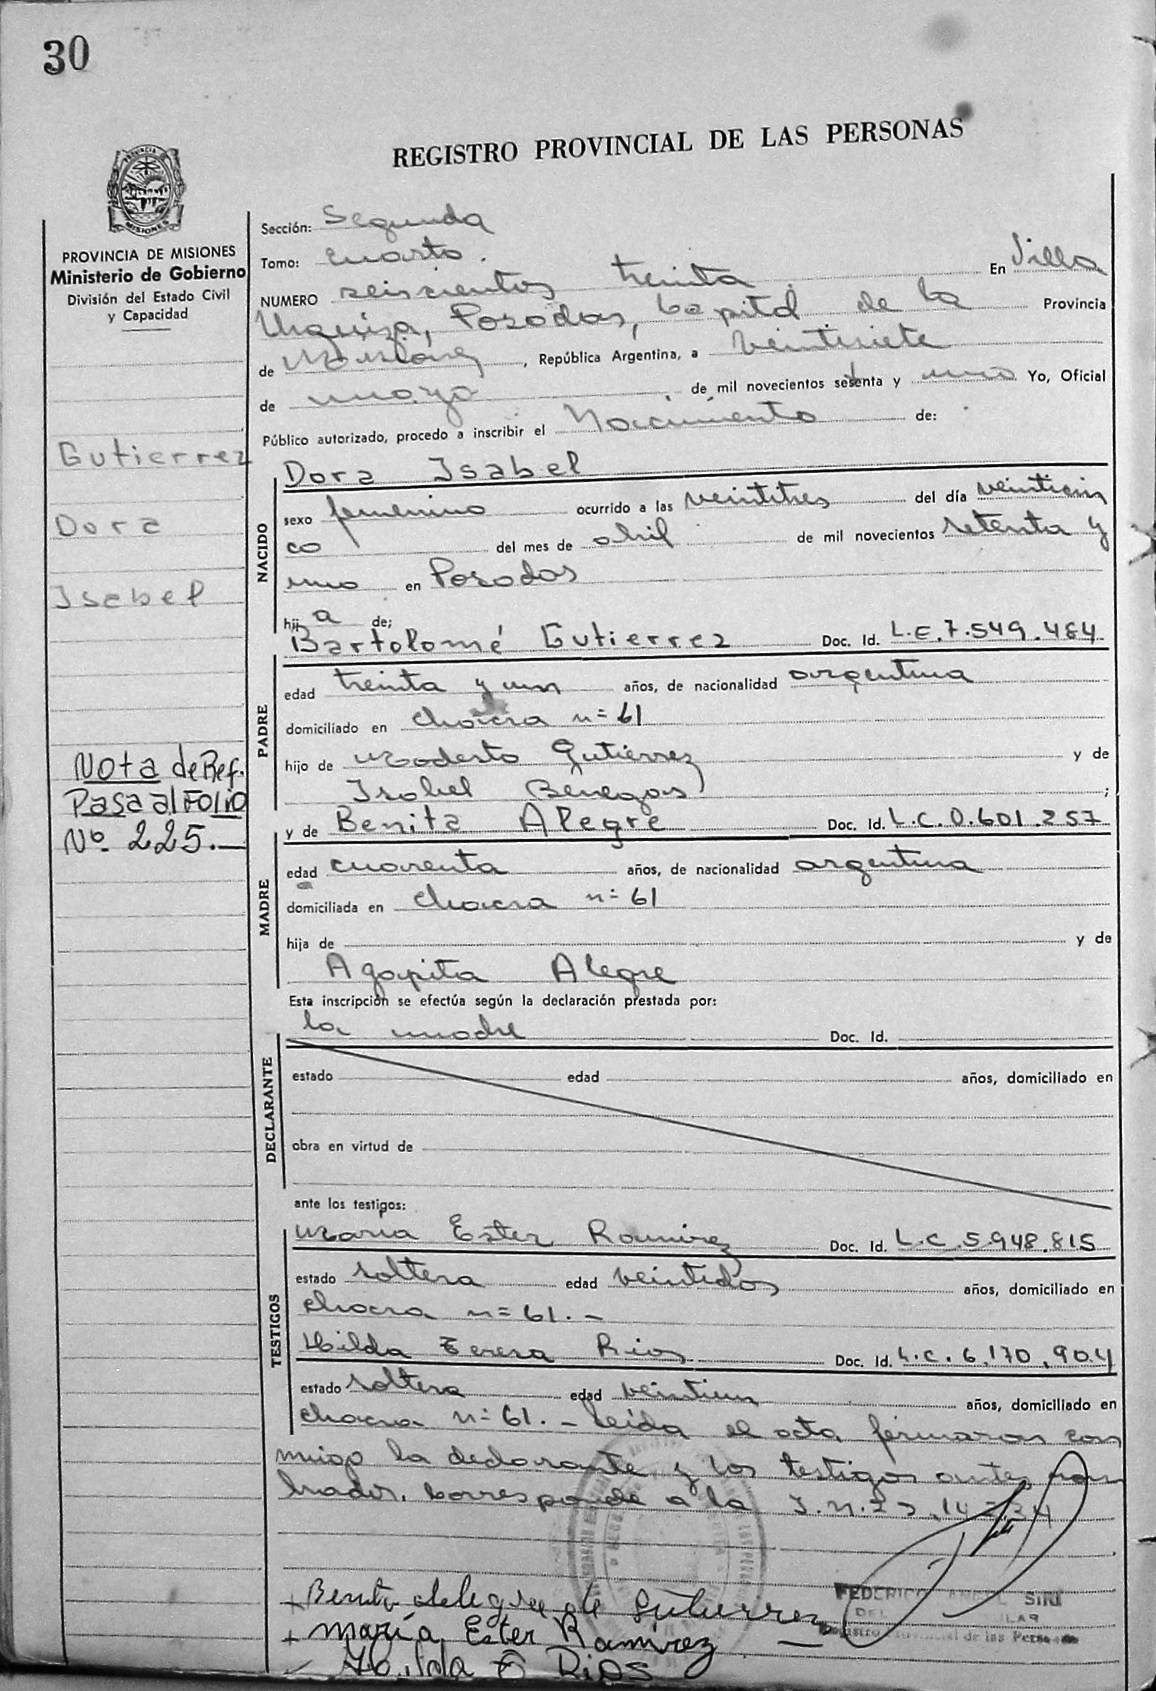 30
REGISTRO PROVINCIAL DE LAS PERSONAS
PROVINCIA DE MISIONES
Ministerio de Gobierno
División del Estado Civil
y Capacidad
Gutierrez
Dora
Isabel
Nota de Ref.
Pasa al FOLIO
Nº 225.—
Sección: Segunda
Tomo: cuarto.
NUMERO seiscientos treinta. En Villa
Urquiza, Posadas, Capital de la Provincia
de Misiones, República Argentina, a veintisiete
de mayo de mil novecientos setenta y uno Yo, Oficial
Público autorizado, procedo a inscribir el Nacimiento de:
NACIDO
Dora Isabel
sexo femenino ocurrido a las veintitres del día veinticin
co del mes de abril de mil novecientos setenta y
uno en Posadas
hija de:
PADRE
Bartolomé Gutierrez Doc. Id. L.E.7.549.484
edad treinta y un años, de nacionalidad argentina
domiciliado en chacra n=61
hijo de Modesto Gutierrez y de
Isabel Benegas;
MADRE
y de Benita Alegre Doc. Id. L.C.0.601.257
edad cuarenta años, de nacionalidad argentina
domiciliada en chacra n=61
hija de y de
Agapita Alegre
Esta inscripción se efectúa según la declaración prestada por:
la madre Doc. Id.
DECLARANTE
estado edad años, domiciliado en
obra en virtud de
ante los testigos:
TESTIGOS
Maria Ester Ramirez Doc. Id. L.C.5.948.815
estado soltera edad veintidos años, domiciliado en
chacra n=61.-
Hilda Teresa Rios Doc. Id. L.C.6.170.904
estado soltera edad veintiun años, domiciliado en
chacra n=61.- Leída el acta firmaron con
migo la declarante y los testigos antes nom
brados. Corresponde a la
Benita Alegre de Gutierrez
María Ester Ramirez
Hilda T Rios
FEDERICO ANGEL SIRI